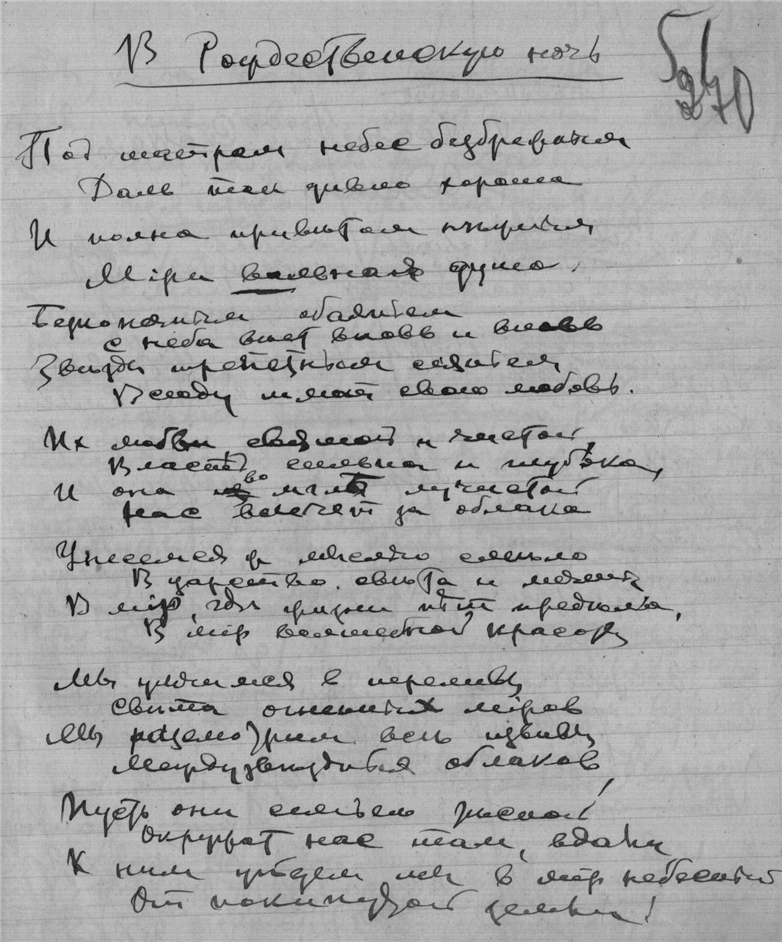 В Рождественскую ночь
270
Под шатром небес безбрежным
Даль так дивно хороша
И полна приветом нежным
Мiра вольная душа.
Безконечным обаятем
с неба вновь и вновь
Звезды трепетным сiянiем
Всюду свою любовь.
Их любви святой и чистой,
Власть сильна и глубока,
И она во мгле лучистой
Нас влечет за облака
Унесемся ж мыслью смело
В царство света и мечты
В мiр, где жизни нѣт предѣла,
В мiр волшебной красоты
Мы умчимся в переливы
Свѣта огненных мiров
Мы разсмотрим всѣ извивы
Междузвѣздных облаков,
Пусть они семьею тесной
Окружат нас там, вдали
К ним уйдем мы в мiр небесный
От покинутой земли!